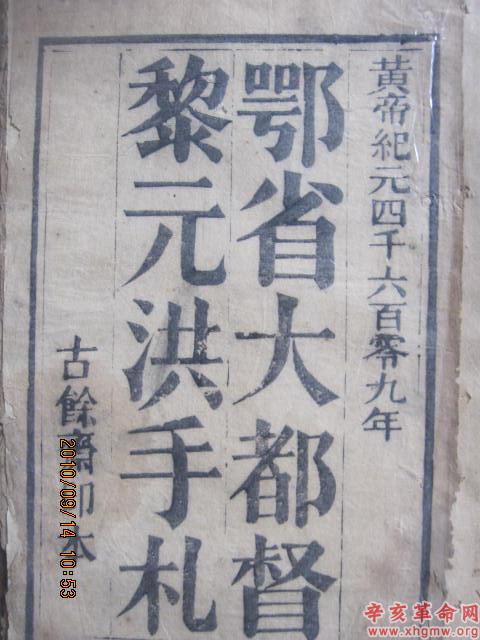 黃帝紀元四千六百零九年
鄂省大都督
黎元洪手札
古餘齋印本
2010/09/14 10:53
辛亥革命网
www.xhgmw.org